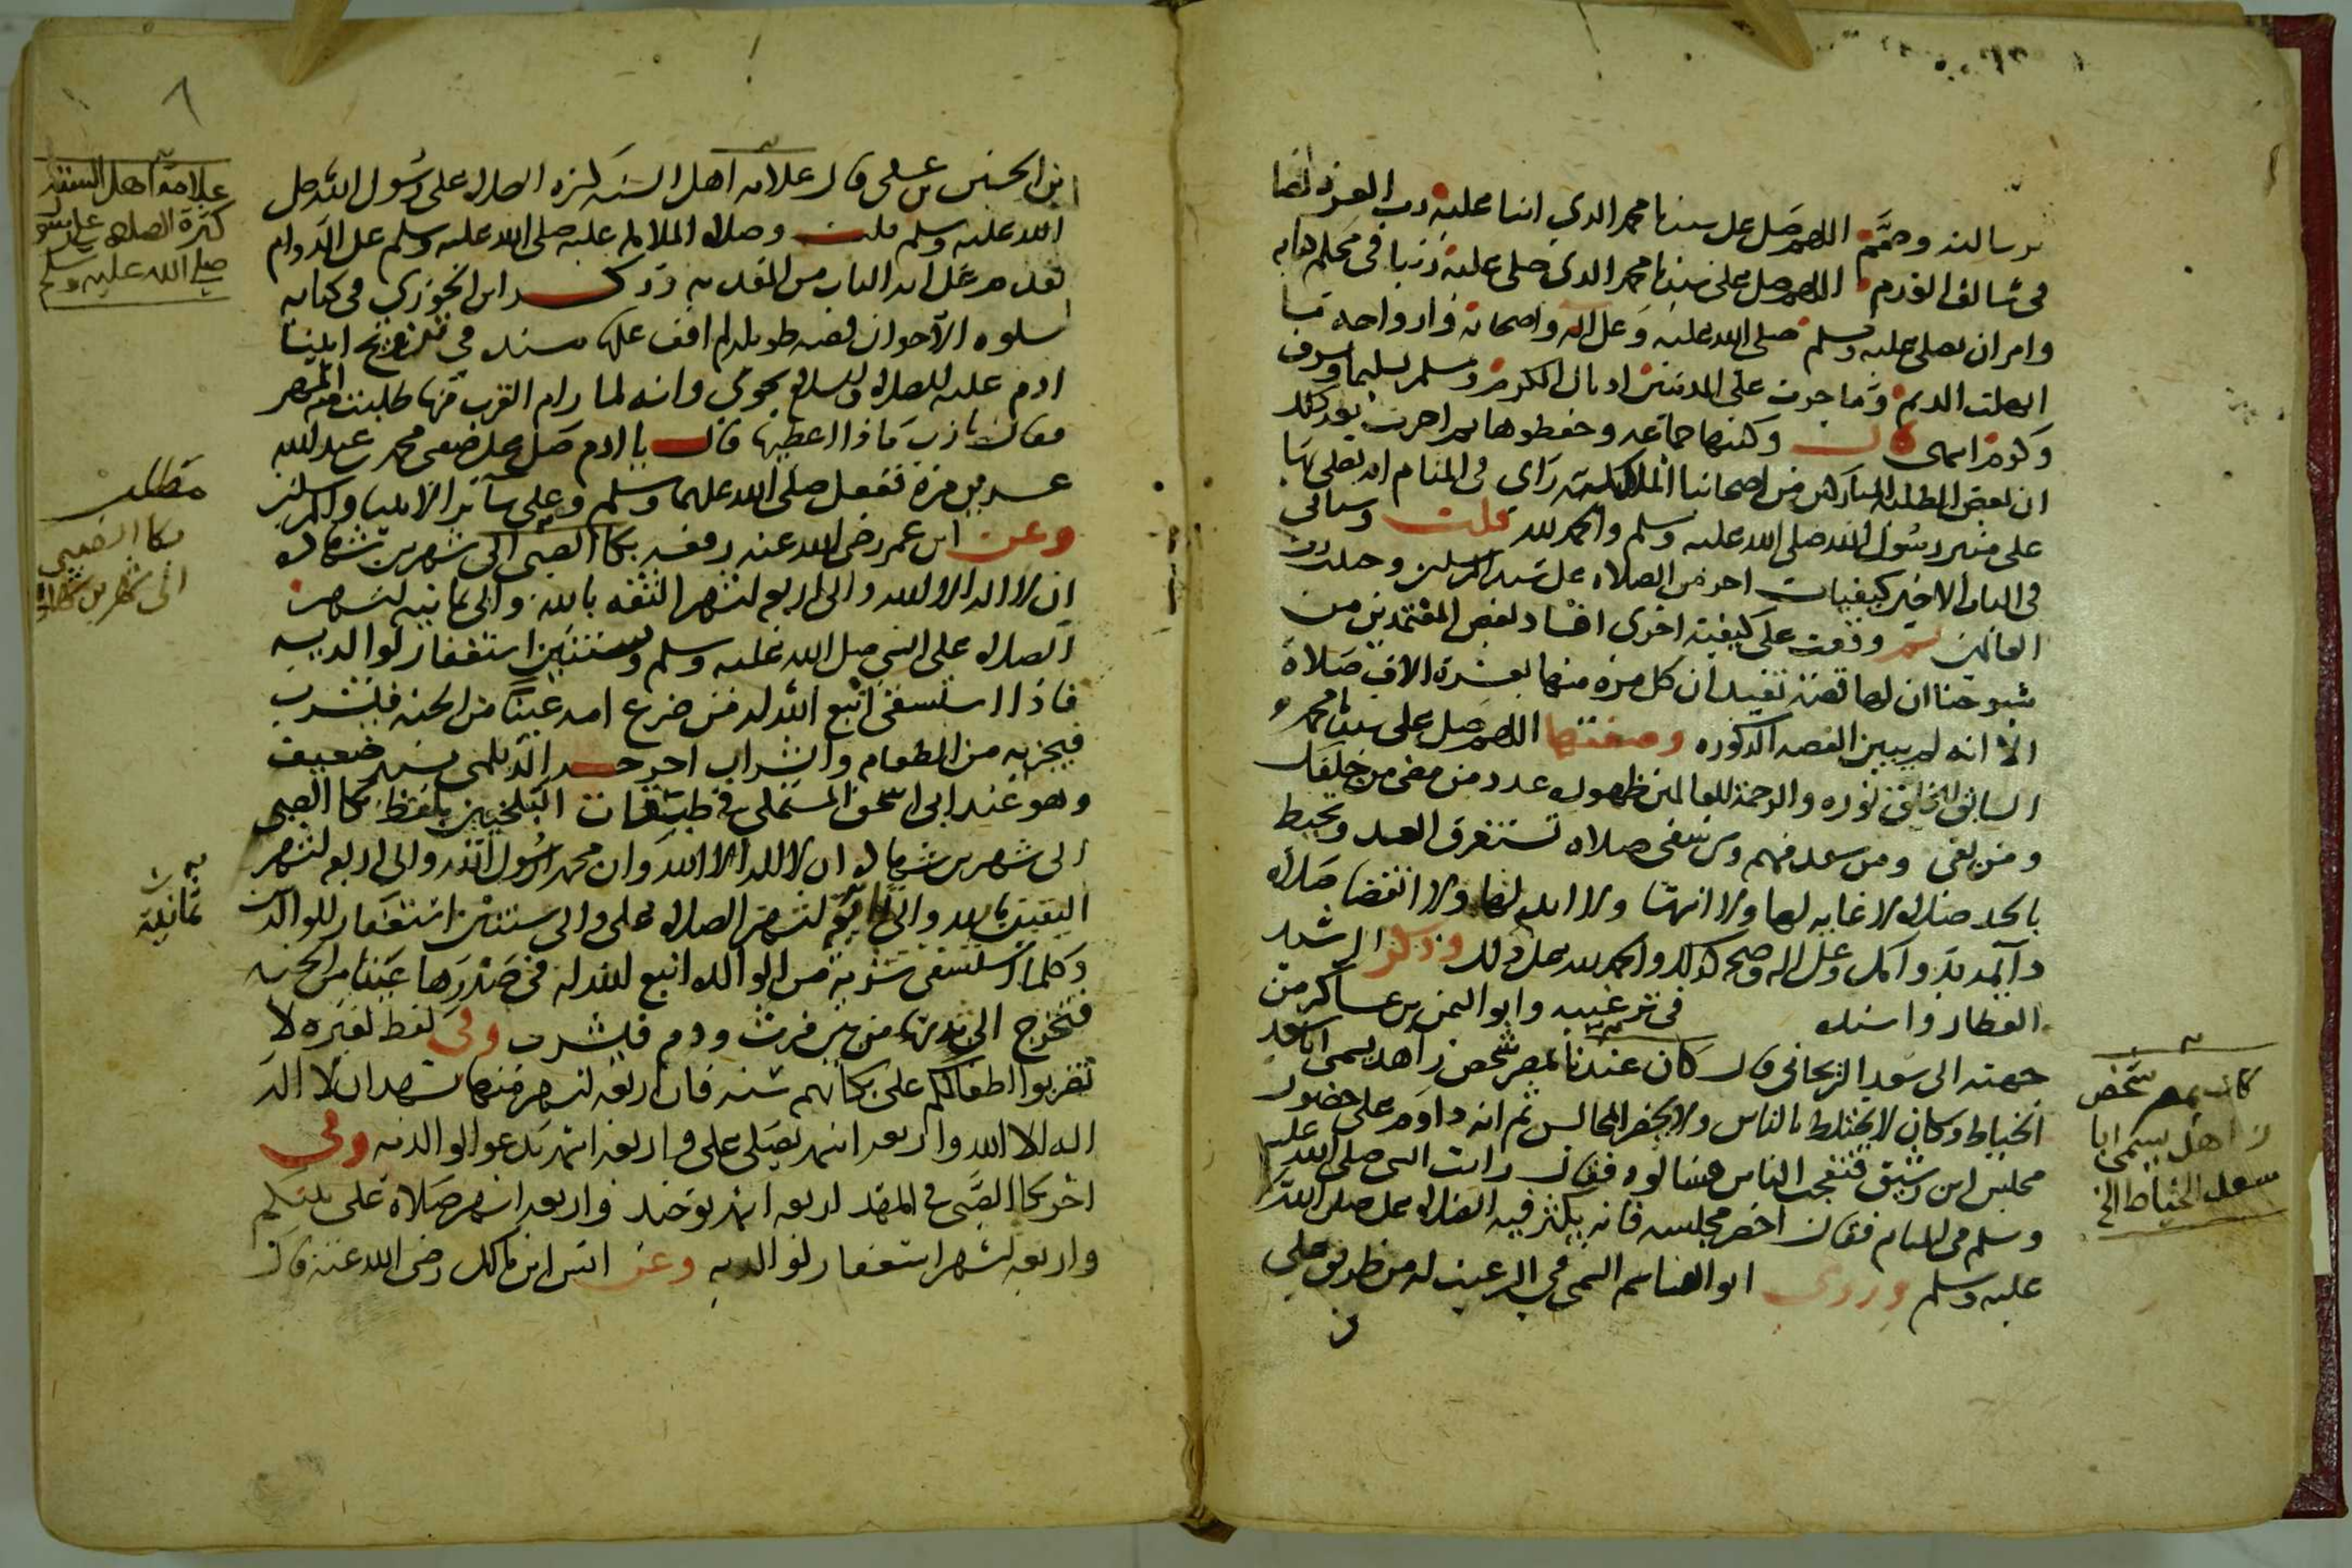 برسالته وختم اللهم صل على سيدنا محمد الذي اثنا عليه رب العزة نصا
في سالف القدم اللهم صل على سيدنا محمد الذي صلى عليه ربنا في محكم كتابه
وامر ان يصلى عليه ويسلم صلى الله عليه وعلى اله واصحابه وازواجه
انهلت الديم وما جرت على المذنبين اذيال الكرم وسلم تسليما وشرف
وكرم انتهى قال وكتبها جماعة وحفظوها ثم اخبرت بعد ذلك
ان بعض الطلبة المباركين من اصحابنا المالكية راى في المنام انه يصلي بها
على منبر رسول الله صلى الله عليه وسلم والحمد لله قلت وسيأتي
في الباب الاخير كيفيات اخر في الصلاة على سيد المرسلين وحمد رب
العالمين ثم وقفت على كيفية اخرى افاد بعض المعتمدين من
شيوخنا ان لها قصة تفيد ان كل مرة منها بعشرة الاف صلاة
الا انه لم يبين القصة المذكورة وصفتها اللهم صل على سيدنا محمد
السابق للخلق نوره والرحمة للعالمين ظهوره عدد من مضى من خلقك
ومن بقي ومن سعد منهم ومن شقي صلاة تستغرق العد وتحيط
بالحد صلاة لا غاية لها ولا انتهاء ولا امد لها ولا انقضا صلاة
دائمة بدوامك وعلى اله وصحبه كذلك والحمد لله على ذلك وذكر الرشيد
العطار واسنده في ترغيبه وابو اليمن بن عساكر من
جهته الى سعد الزنجاني قال كان عندنا بمصر شخص زاهد يسمى ابا سعد
الخياط وكان لا يختلط بالناس ولا يحضر المجالس ثم انه داوم على حضور
مجلس ابن رشيق فتعجب الناس فسالوه فقال رايت النبي صلى الله عليه
وسلم في المنام فقال احضر مجلسه فانه يكثر فيه الصلاة علي صلى الله
عليه وسلم وروى ابو القاسم التيمي في الترغيب له من طريق علي
كان بمصر شخص
زاهد يسمى ابا
سعد الخياط الخ
بن الحسين بن علي قال علامة اهل السنة كثرة الصلاة على رسول الله صلى
الله عليه وسلم قلت وصلاة الملائكة عليه صلى الله عليه وسلم على الدوام
تقدم محل اية الباب من المقدمة وذكر ابن الجوزي في كتابه
سلوة الاحزان قصة طويلة لم اقف على سندها في تزويج ابينا
ادم عليه الصلاة والسلام بحوى وانه لما رام القرب منها طلبت منه المهر
فقال يا رب ماذا اعطيها قال يا ادم صل على صفيي محمد بن عبد الله
عشرين مرة ففعل صلى الله عليهما وسلم وعلى سائر الانبيا والمرسلين
وعن ابن عمر رضي الله عنه رفعه بكا الصبي الى شهرين شهادة
ان لا اله الا الله والى اربعة اشهر الثقة بالله والى ثمانية اشهر
الصلاة على النبي صلى الله عليه وسلم ولسنتين استغفار لوالديه
فاذا استسقى انبع الله له من ضرع امه عينا من الجنة فيشرب
فيجزيه من الطعام والشراب اخرجه الديلمي بسند ضعيف
وهو عند ابي اسحق المستملي في طبقات البلخيين بلفظ بكا الصبي
الى شهرين شهادة ان لا اله الا الله وان محمدا رسول الله والى اربعة اشهر
اليقين بالله والى ثمانية اشهر الصلاة علي والى سنتين استغفار للوالدين
وكلما استسقى شربة من الوالدة انبع الله له في صدرها عينا من الجنة
فتخرج الى ثديها من بين فرث ودم فيشرب وفي لفظ لغيره لا
تضربوا اطفالكم على بكائهم سنة فان اربعة اشهر منها تشهد ان لا اله
اله الا الله واربعة اشهر يصلي علي واربعة اشهر يدعو لوالديه وفي
اخر بكا الصبي في المهد اربعة اشهر توحيد واربعة اشهر صلاة على نبيكم
واربعة اشهر استغفار لوالديه وعن انس ابن مالك رضي الله عنه قال
علامة اهل السنة
كثرة الصلاة على رسول
صلى الله عليه وسلم
مطلب
بكا الصبي
الى شهرين شهادة
ثمانية